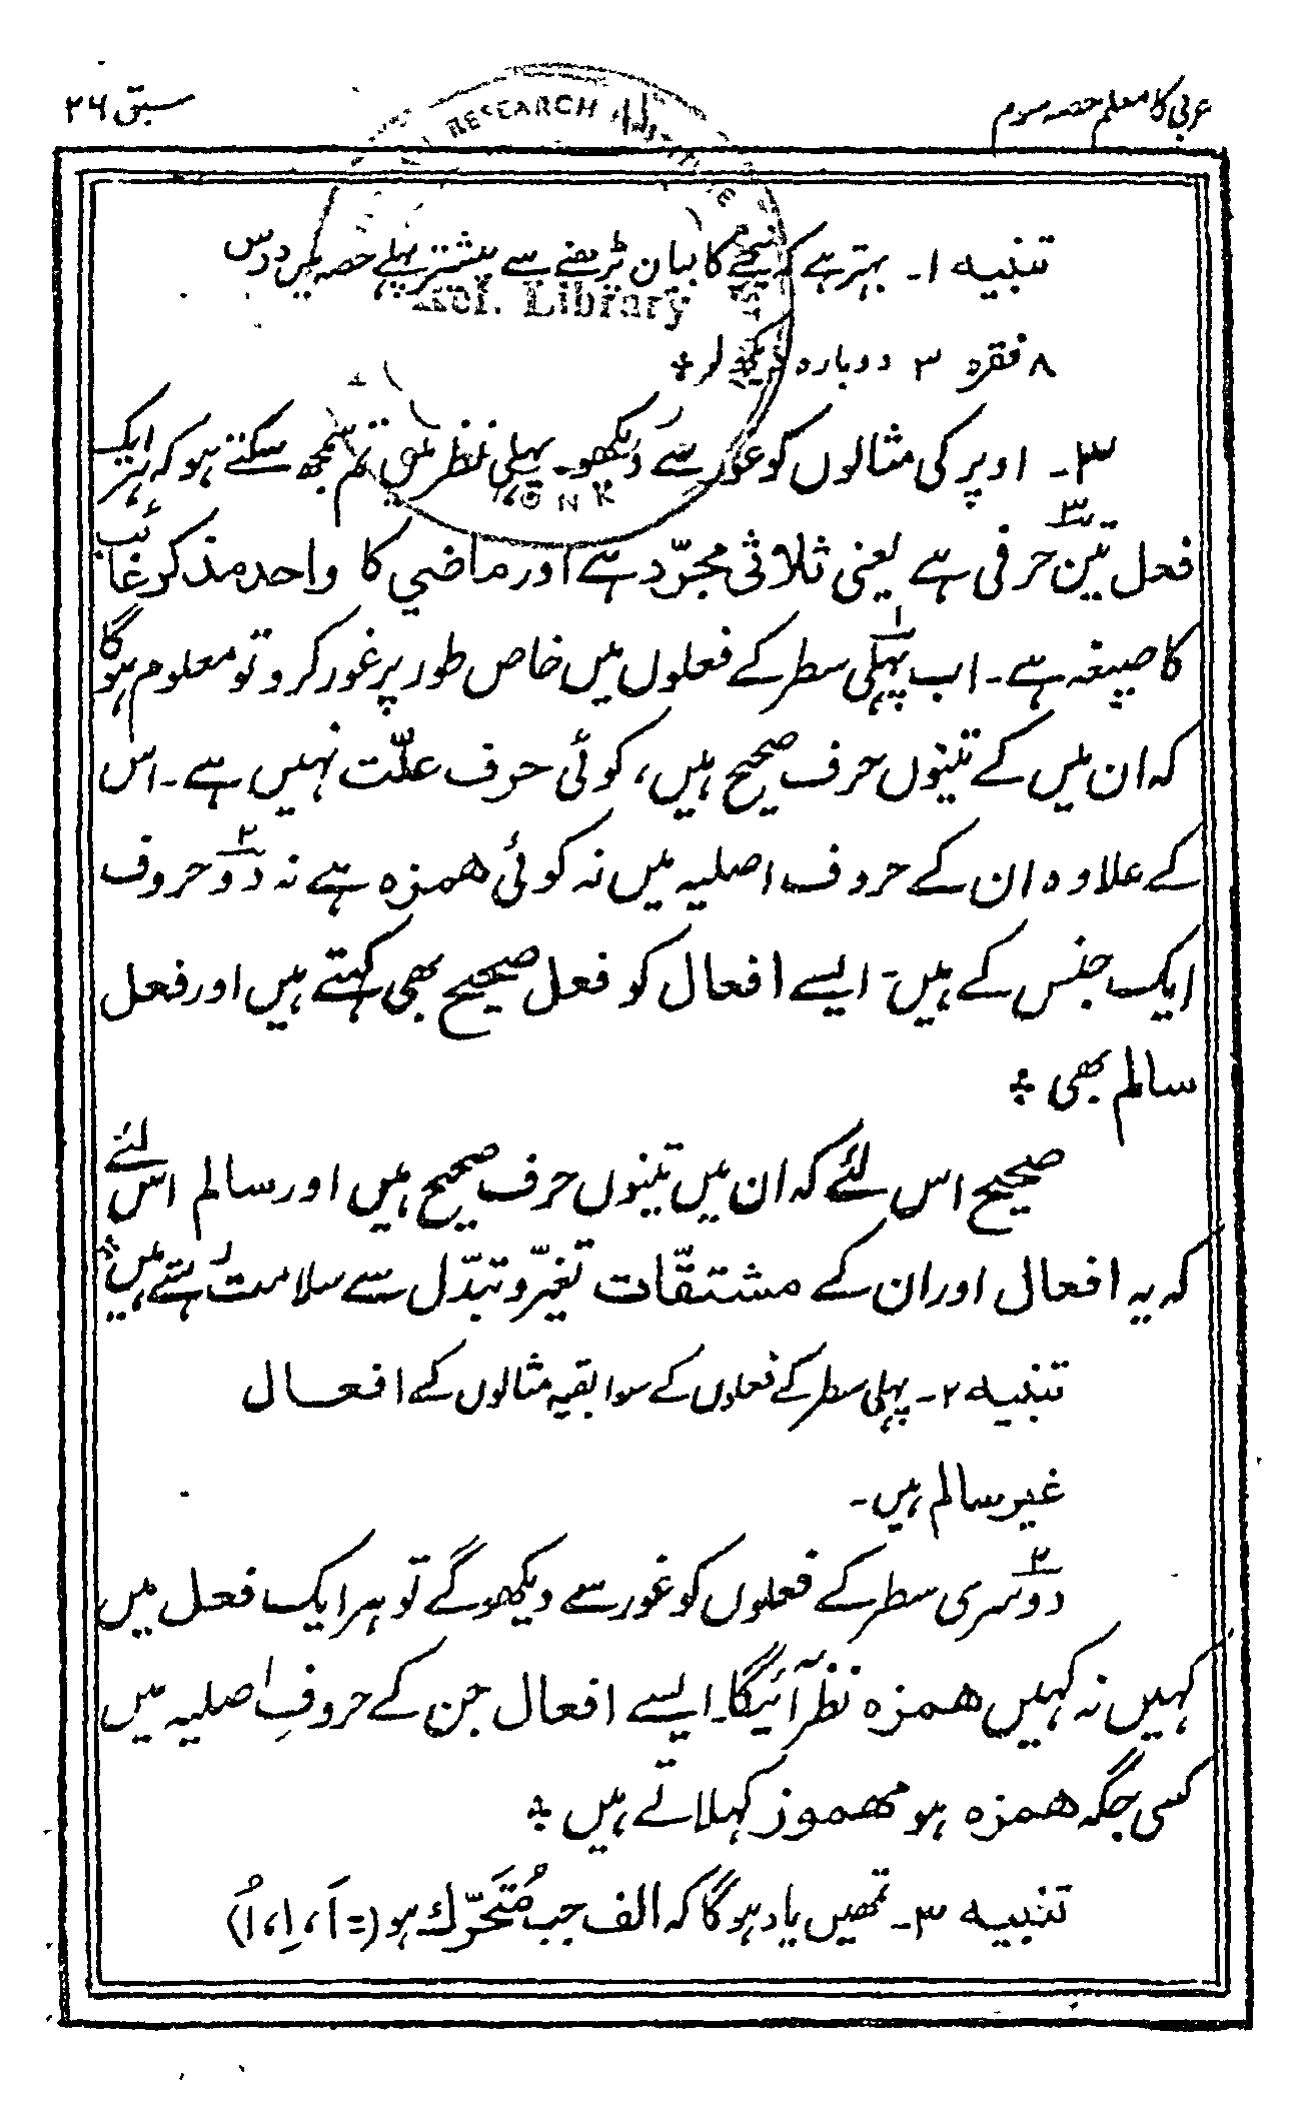 عربی کا معلم حصہ سوم
سبق ۲۶
RESEARCH
تنبیہ ۱۔ بہتر ہے کہ نیچے کا بیان پڑھنے سے پیشتر پہلے حصہ میں درس
Ref. Library
۸ فقرہ ۳ دوبارہ دیکھ لو ÷
۳۔ اوپر کی مثالوں کو غور سے دیکھو۔ پہلی نظر میں تم سمجھ سکتے ہو کہ ہر ایک
فعل تین۳ حرفی ہے یعنی ثلاثی مجرّد ہے اور ماضی کا واحد مذکر غائب
کا صیغہ ہے۔ اب پہلی۱ سطر کے فعلوں میں خاص طور پر غور کرو تو معلوم ہوگا
کہ ان میں کے تینوں حرف صحیح ہیں، کوئی حرف علّت نہیں ہے۔ اس
کے علاوہ ان کے حروف اصلیہ میں نہ کوئی ھمزہ ہے نہ دو۲ حروف
ایک جنس کے ہیں۔ ایسے افعال کو فعل صحیح بھی کہتے ہیں اور فعل
سالم بھی ÷
صحیح اس لئے کہ ان میں تینوں حرف صحیح ہیں اور سالم اس لئے
کہ یہ افعال اور ان کے مشتقّات تغیّر و تبدّل سے سلامت رہتے ہیں
تنبیہ ۲۔ پہلی سطر کے فعلوں کے سوا بقیہ مثالوں کے افعال
غیر سالم ہیں۔
دوسری۲ سطر کے فعلوں کو غور سے دیکھو گے تو ہر ایک فعل میں
کہیں نہ کہیں ھمزہ نظر آئیگا۔ ایسے افعال جن کے حروفِ اصلیہ میں
کسی جگہ ھمزہ ہو مھموز کہلاتے ہیں ÷
تنبیہ ۳۔ تمھیں یاد ہوگا کہ الف جب مُتَحَرّک ہو (= اَ، اِ، اُ)